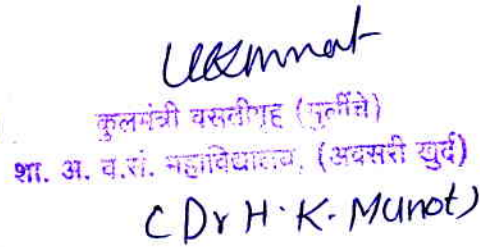 कुलमंत्री वसतीगृह (मुलींचे)
शा. अ. व.सं. महाविद्यालय, (अवसरी खुर्द)
(Dr H. K. Munot)